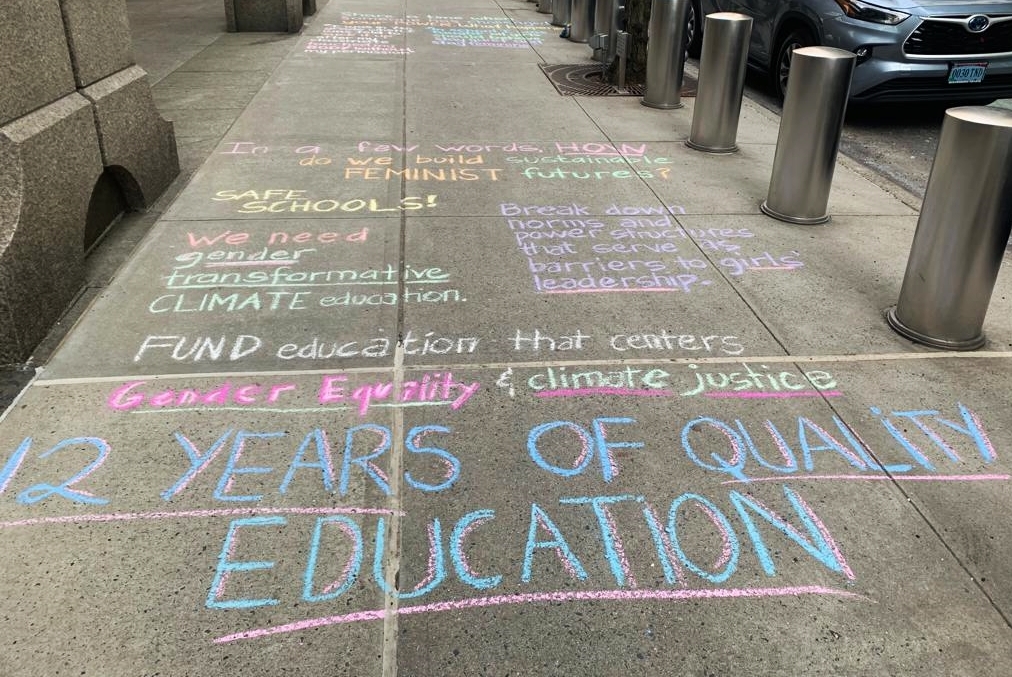 In a few words, HOW
do we build sustainable
FEMINIST futures?
SAFE
SCHOOLS!
We need
gender
transformative
CLIMATE education.
Break down
norms and
power structures
that serve as
barriers to girls'
leadership.
FUND education that centers
Gender Equality & climate justice
12 YEARS OF QUALITY
EDUCATION